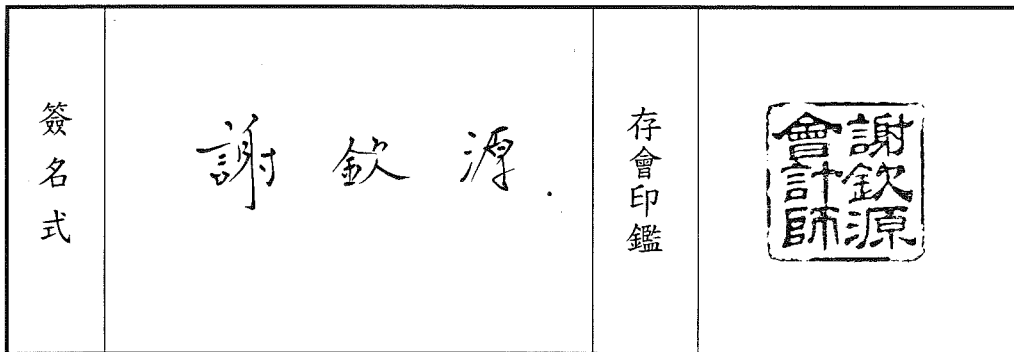 簽名式
謝欽源.
存會印鑑
謝欽源
會計師